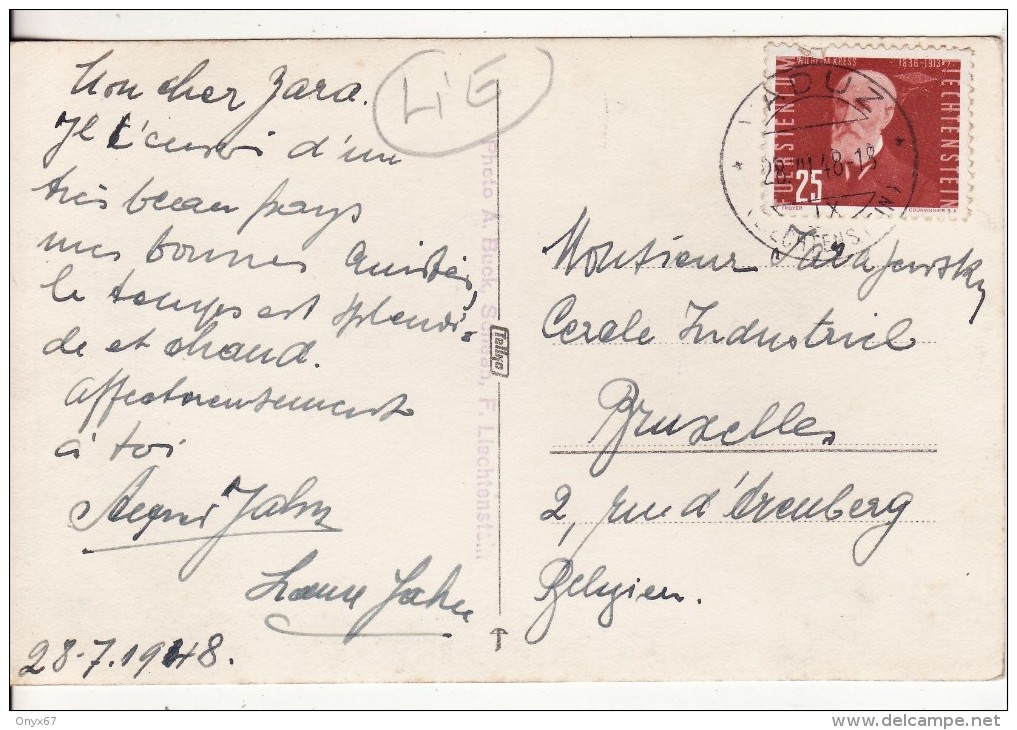 Mon cher Zara.
Je t'envoi d'un
très beau pays
mes bonnes amitiés,
le temps est splendi-
de et chaud.
affectueusement
à toi
Jahn
Jahn
28.7.1948.
LiE
Photo A. Buck, Schaan, F. Liechtenstein
Tellko
WILHELM KRESS 1836-1913
FUERSTENTUM LIECHTENSTEIN
25
TROYER COURVOISIER S.A.
VADUZ
28.VII.48-18
IX
(LIECHTENSTEIN)
Monsieur
Cercle Industriel
Bruxelles
2, rue d'Arenberg
Belgien.
Onyx67
delcampe.net